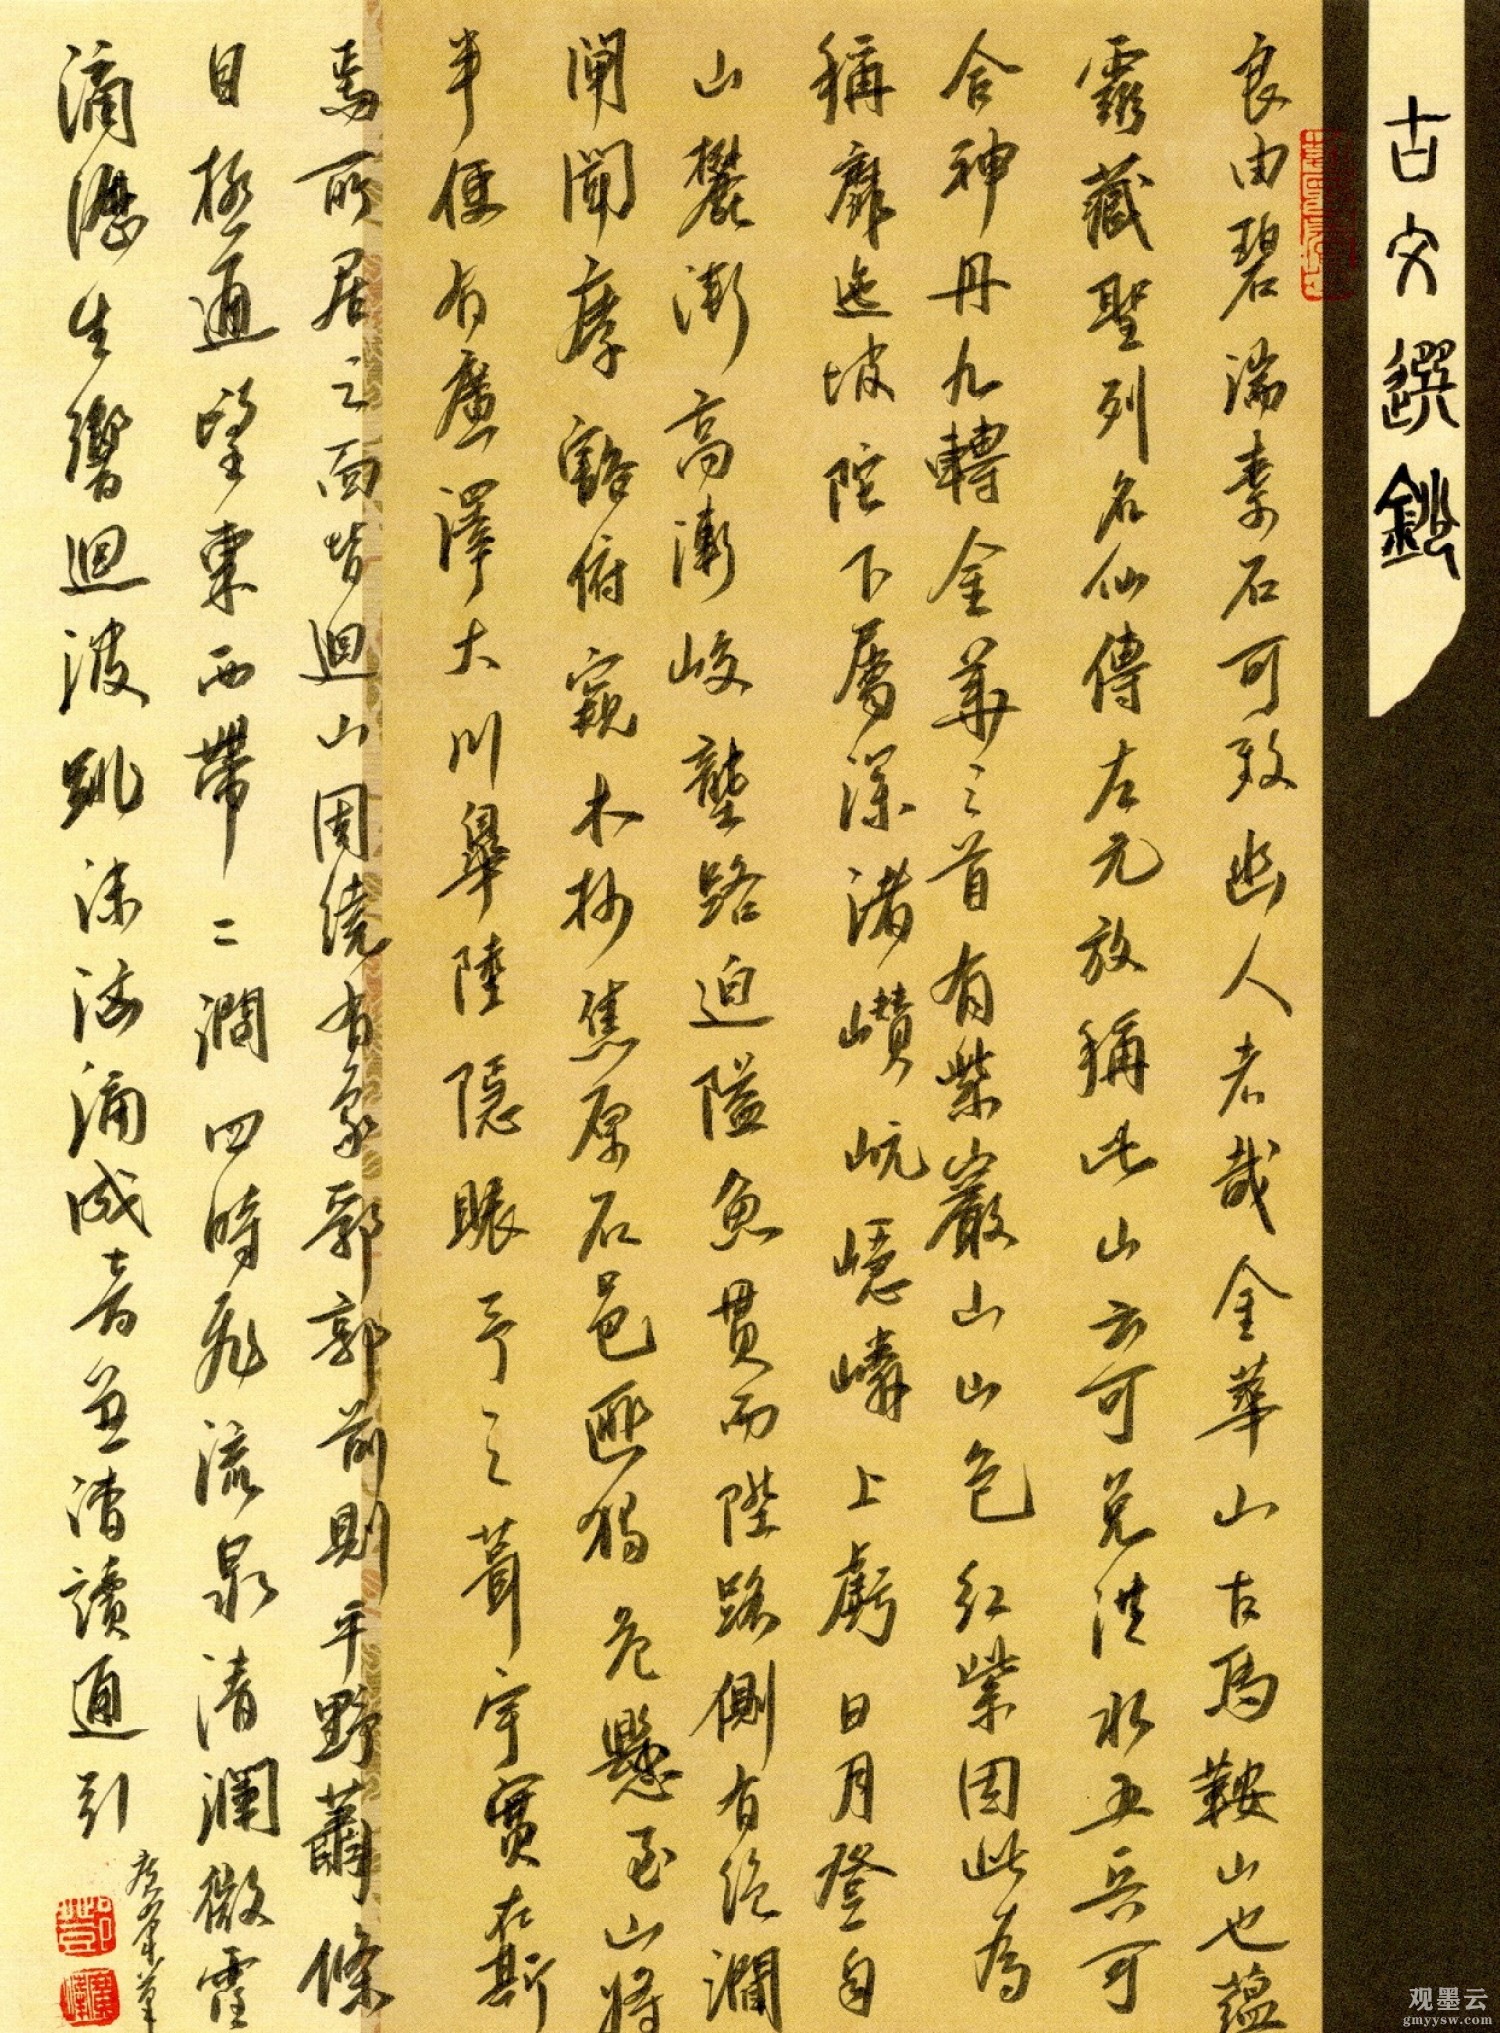 古文選鈔
良由碧湍素石可致幽人者哉金華山古馬鞍山也蘊
靈藏聖列名仙傳左元放稱此山云可免洪水五兵可
合神丹九轉金華之首有紫巖山山色紅紫因此為
稱靡迤坡陀下屬深渚巑岏嶾嶙上虧日月登自
山麓漸高漸峻壟路迫隘魚貫而陞路側有絕澗
閘聞摩豁俯窺木杪焦原石邑匪獨危懸至山將
半便有廣澤大川皋陸隱賑予之葺宇實在斯
焉所居之面皆迴山周繞有象郛郭前則平野蕭條
目極通望東西帶二澗四時飛流泉清瀾微霔
滴瀝生響迴波跳沫洶涌成音並漕瀆通引
观墨云
gmyysw.com